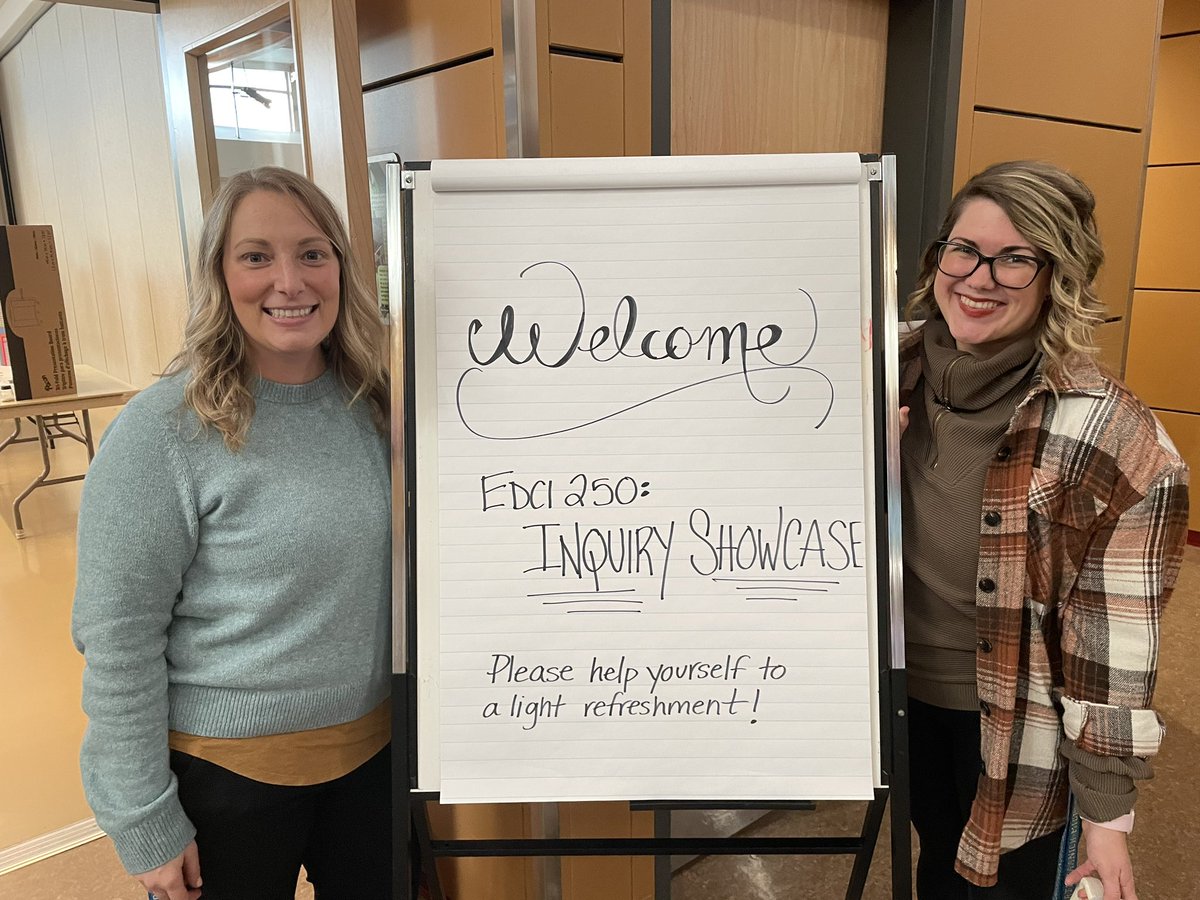 Welcome
EDCI 250:
INQUIRY SHOWCASE
Please help yourself to
a light refreshment!